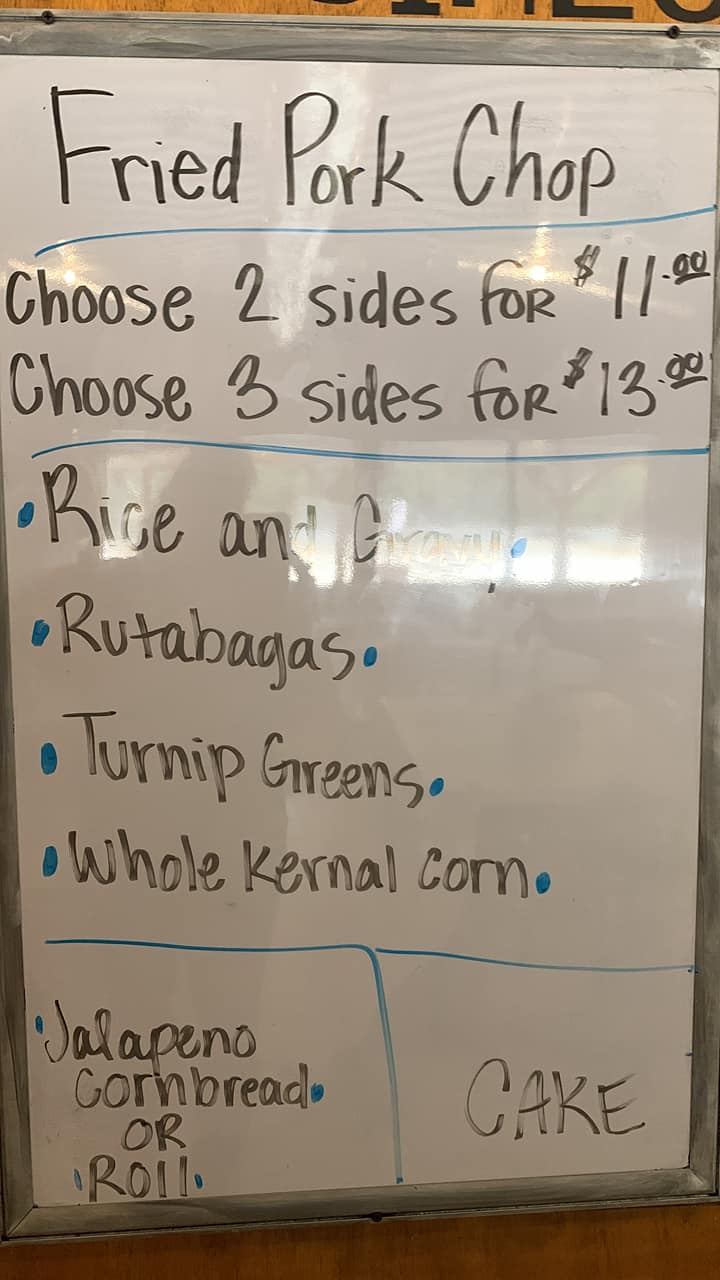 Fried Pork Chop
Choose 2 sides for $11.00
Choose 3 sides for $13.00
• Rice and Gravy •
• Rutabagas •
• Turnip Greens •
• Whole Kernal corn •
• Jalapeno
cornbread •
OR
• Roll •
CAKE